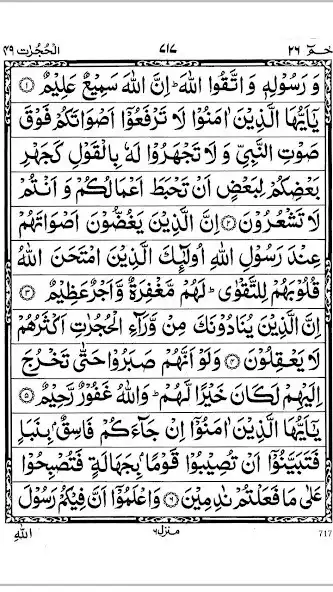 الحجرات ٤٩ ٧١٧ حٰمٓ ٢٦
وَ رَسُوْلِهٖ وَ اتَّقُوا اللّٰهَؕ اِنَّ اللّٰهَ سَمِيْعٌ عَلِيْمٌ ﴿۱﴾
يٰۤاَيُّهَا الَّذِيْنَ اٰمَنُوْا لَا تَرْفَعُوْۤا اَصْوَاتَكُمْ فَوْقَ
صَوْتِ النَّبِيِّ وَ لَا تَجْهَرُوْا لَهٗ بِالْقَوْلِ كَجَهْرِ
بَعْضِكُمْ لِبَعْضٍ اَنْ تَحْبَطَ اَعْمَالُكُمْ وَ اَنْتُمْ
لَا تَشْعُرُوْنَ ﴿۲﴾ اِنَّ الَّذِيْنَ يَغُضُّوْنَ اَصْوَاتَهُمْ
عِنْدَ رَسُوْلِ اللّٰهِ اُولٰٓئِكَ الَّذِيْنَ امْتَحَنَ اللّٰهُ
قُلُوْبَهُمْ لِلتَّقْوٰىؕ لَهُمْ مَّغْفِرَةٌ وَّ اَجْرٌ عَظِيْمٌ ﴿۳﴾
اِنَّ الَّذِيْنَ يُنَادُوْنَكَ مِنْ وَّرَآءِ الْحُجُرٰتِ اَكْثَرُهُمْ
لَا يَعْقِلُوْنَ ﴿۴﴾ وَلَوْ اَنَّهُمْ صَبَرُوْا حَتّٰى تَخْرُجَ
اِلَيْهِمْ لَكَانَ خَيْرًا لَّهُمْؕ وَاللّٰهُ غَفُوْرٌ رَّحِيْمٌ ﴿۵﴾
يٰۤاَيُّهَا الَّذِيْنَ اٰمَنُوْۤا اِنْ جَآءَكُمْ فَاسِقٌۢ بِنَبَاٍ
فَتَبَيَّنُوْۤا اَنْ تُصِيْبُوْا قَوْمًۢا بِجَهَالَةٍ فَتُصْبِحُوْا
عَلٰى مَا فَعَلْتُمْ نٰدِمِيْنَ ﴿۶﴾ وَاعْلَمُوْۤا اَنَّ فِيْكُمْ رَسُوْلَ
اللّٰهِ منزل ٦ 717